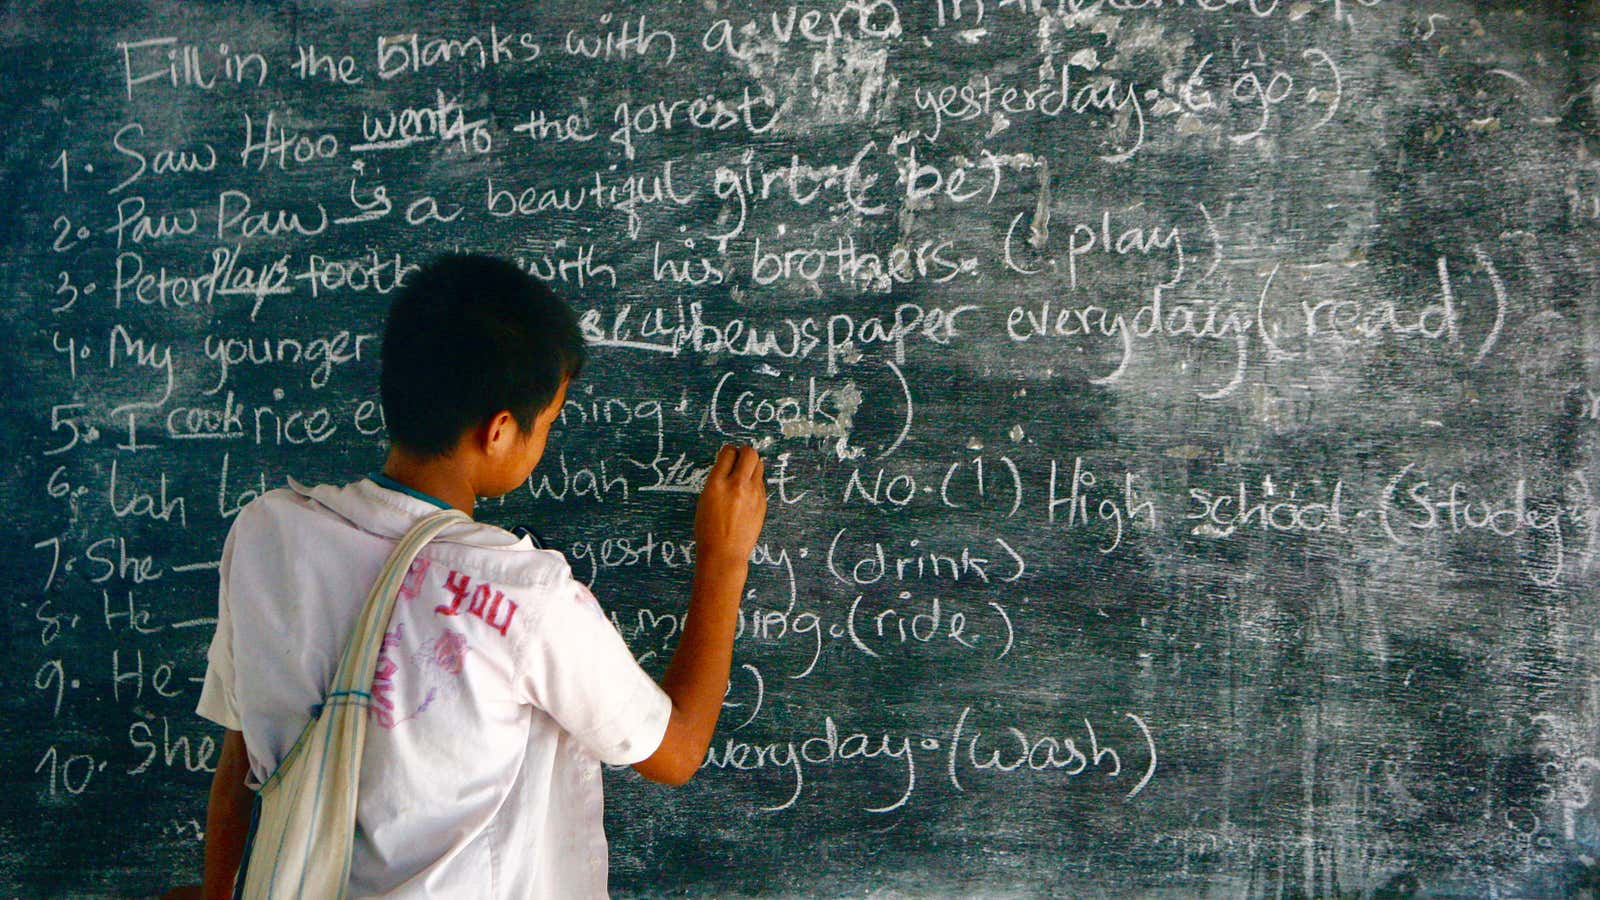 Fill in the blanks with a verb in
1. Saw Htoo went to the forest yesterday. (go.)
2. Paw Paw is a beautiful girl. (be)
3. Peter plays with his brothers. (play)
4. My younger newspaper everyday. (read)
5. I cook rice (cook)
6. Lah Wah No. (1) High school. (Study)
7. She yesterday. (drink)
8. He (ride)
9. He
10. She everyday. (wash)
you